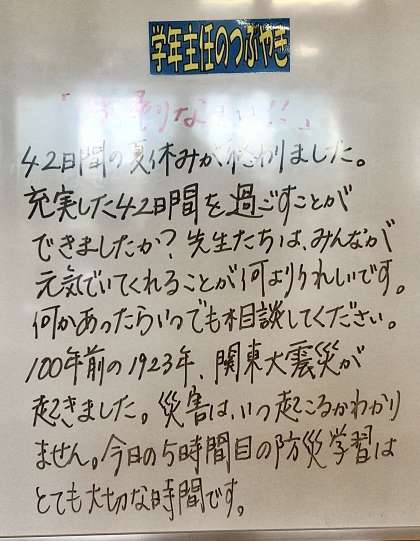 学年主任のつぶやき
「お帰りなさい!!」
42日間の夏休みが終わりました。
充実した42日間を過ごすことが
できましたか?先生たちは、みんなが
元気でいてくれることが何よりうれしいです。
何かあったらいつでも相談してください。
100年前の1923年、関東大震災が
起きました。災害は、いつ起こるかわかり
ません。今日の5時間目の防災学習は
とても大切な時間です。